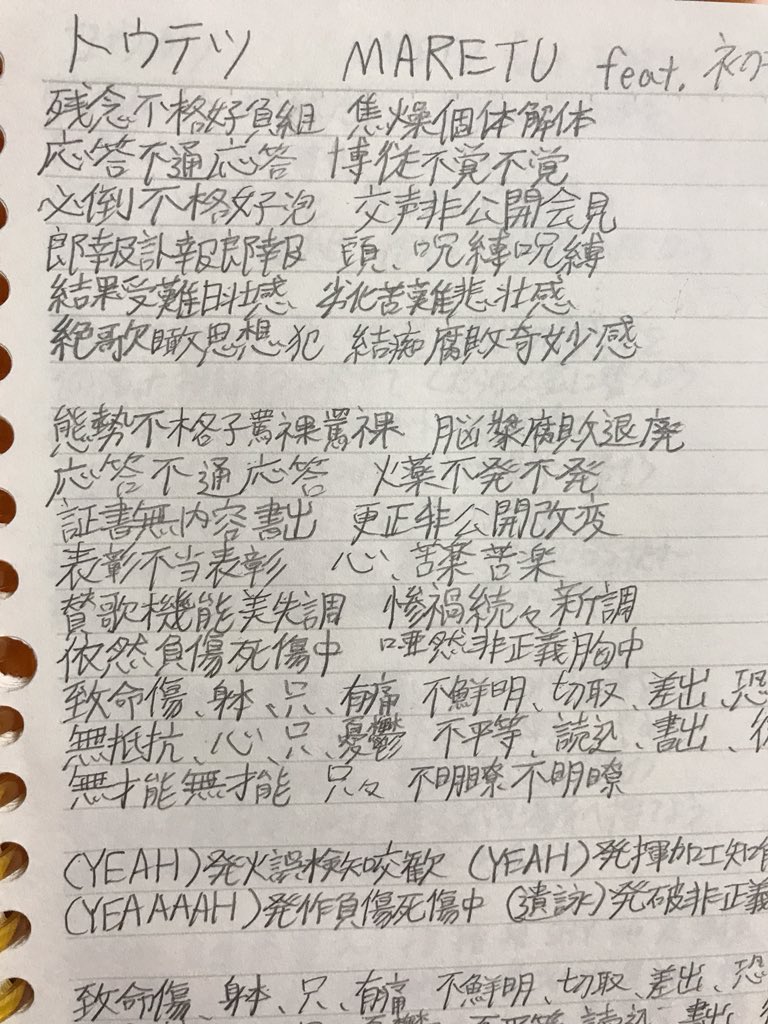 トウテツ MARETU feat. 初
残念不格好負組 焦燥個体解体
応答不通応答 博徒不覚不覚
必倒不格好泡 交声非公開会見
郎報訃報郎報 頭、呪縛呪縛
結果受難日壮感 劣化苦難悲壮感
絶歌瞰思想犯 結痴腐敗奇妙感
態勢不格子罵裸罵裸 脳漿腐敗退廃
応答不通応答 火薬不発不発
証書無内容書出 更正非公開改変
表彰不当表彰 心、苦楽苦楽
賛歌機能美失調 惨禍続々新調
依然負傷死傷中 唖然非正義胸中
致命傷、身体、只、有痛 不鮮明、切取、差出、恐
無抵抗、心、只、憂鬱 不平等、読込、書出、
無才能無才能 只々 不明瞭不明瞭
(YEAH)発火誤検知咬歓 (YEAH)発揮加工知
(YEAAAAH)発作負傷死傷中 (遺詠)発破非正義
致命傷、身体、只、有痛 不鮮明、切取、差出、恐